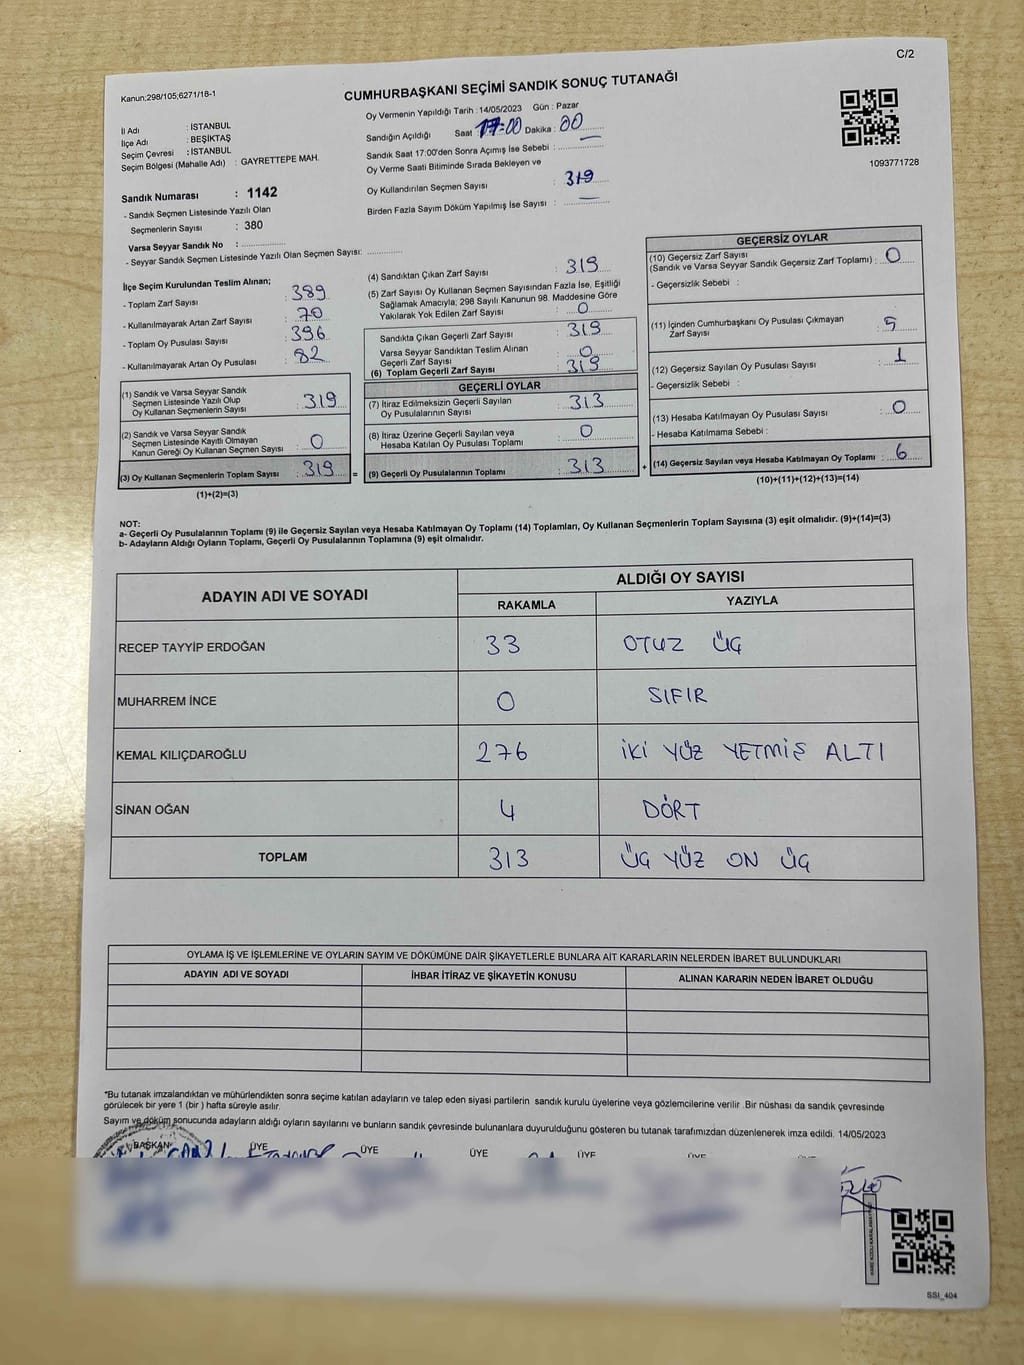 C/2
Kanun;298/105;6271/18-1
CUMHURBAŞKANI SEÇİMİ SANDIK SONUÇ TUTANAĞI
İl Adı : İSTANBUL
İlçe Adı : BEŞİKTAŞ
Seçim Çevresi : İSTANBUL
Seçim Bölgesi (Mahalle Adı) : GAYRETTEPE MAH.
Oy Vermenin Yapıldığı Tarih : 14/05/2023 Gün : Pazar
Sandığın Açıldığı Saat 17:00 Dakika : 00
Sandık Saat 17:00'den Sonra Açımış İse Sebebi :
Oy Verme Saati Bitiminde Sırada Bekleyen ve
Oy Kullandırılan Seçmen Sayısı : 319
Birden Fazla Sayım Döküm Yapılmış İse Sayısı : —
1093771728
Sandık Numarası : 1142
- Sandık Seçmen Listesinde Yazılı Olan
Seçmenlerin Sayısı : 380
Varsa Seyyar Sandık No :
- Seyyar Sandık Seçmen Listesinde Yazılı Olan Seçmen Sayısı:
İlçe Seçim Kurulundan Teslim Alınan;
- Toplam Zarf Sayısı : 389
- Kullanılmayarak Artan Zarf Sayısı : 70
- Toplam Oy Pusulası Sayısı : 396
- Kullanılmayarak Artan Oy Pusulası : 82
(1) Sandık ve Varsa Seyyar Sandık
Seçmen Listesinde Yazılı Olup
Oy Kullanan Seçmenlerin Sayısı : 319
(2) Sandık ve Varsa Seyyar Sandık
Seçmen Listesinde Kayıtlı Olmayan
Kanun Gereği Oy Kullanan Seçmen Sayısı : 0
(3) Oy Kullanan Seçmenlerin Toplam Sayısı : 319
(1)+(2)=(3)
(4) Sandıktan Çıkan Zarf Sayısı : 319
(5) Zarf Sayısı Oy Kullanan Seçmen Sayısından Fazla İse, Eşitliği
Sağlamak Amacıyla; 298 Sayılı Kanunun 98. Maddesine Göre
Yakılarak Yok Edilen Zarf Sayısı : 0
Sandıkta Çıkan Geçerli Zarf Sayısı : 319
Varsa Seyyar Sandıktan Teslim Alınan
Geçerli Zarf Sayısı : 0
(6) Toplam Geçerli Zarf Sayısı : 319
GEÇERLİ OYLAR
(7) İtiraz Edilmeksizin Geçerli Sayılan
Oy Pusulasının Sayısı : 313
(8) İtiraz Üzerine Geçerli Sayılan veya
Hesaba Katılan Oy Pusulası Toplamı : 0
= (9) Geçerli Oy Pusulalarının Toplamı : 313
GEÇERSİZ OYLAR
(10) Geçersiz Zarf Sayısı
(Sandık ve Varsa Seyyar Sandık Geçersiz Zarf Toplamı) : 0
- Geçersizlik Sebebi :
(11) İçinden Cumhurbaşkanı Oy Pusulası Çıkmayan
Zarf Sayısı : 5
(12) Geçersiz Sayılan Oy Pusulası Sayısı : 1
- Geçersizlik Sebebi :
(13) Hesaba Katılmayan Oy Pusulası Sayısı : 0
- Hesaba Katılmama Sebebi :
+ (14) Geçersiz Sayılan veya Hesaba Katılmayan Oy Toplamı : 6
(10)+(11)+(12)+(13)=(14)
NOT:
a- Geçerli Oy Pusulalarının Toplamı (9) ile Geçersiz Sayılan veya Hesaba Katılmayan Oy Toplamı (14) Toplamları, Oy Kullanan Seçmenlerin Toplam Sayısına (3) eşit olmalıdır. (9)+(14)=(3)
b- Adayların Aldığı Oyların Toplamı, Geçerli Oy Pusulalarının Toplamına (9) eşit olmalıdır.
ADAYIN ADI VE SOYADI
ALDIĞI OY SAYISI
RAKAMLA YAZIYLA
RECEP TAYYİP ERDOĞAN 33 OTUZ ÜÇ
MUHARREM İNCE 0 SIFIR
KEMAL KILIÇDAROĞLU 276 İKİ YÜZ YETMİŞ ALTI
SİNAN OĞAN 4 DÖRT
TOPLAM 313 ÜÇ YÜZ ON ÜÇ
OYLAMA İŞ VE İŞLEMLERİNE VE OYLARIN SAYIM VE DÖKÜMÜNE DAİR ŞİKAYETLERLE BUNLARA AİT KARARLARIN NELERDEN İBARET BULUNDUKLARI
ADAYIN ADI VE SOYADI İHBAR İTİRAZ VE ŞİKAYETİN KONUSU ALINAN KARARIN NEDEN İBARET OLDUĞU
*Bu tutanak imzalandıktan ve mühürlendikten sonra seçime katılan adayların ve talep eden siyasi partilerin sandık kurulu üyelerine veya gözlemcilerine verilir .Bir nüshası da sandık çevresinde
görülecek bir yere 1 (bir ) hafta süreyle asılır.
Sayım ve döküm sonucunda adayların aldığı oyların sayılarını ve bunların sandık çevresinde bulunanlara duyurulduğunu gösteren bu tutanak tarafımızdan düzenlenerek imza edildi. 14/05/2023
BAŞKAN ÜYE ÜYE ÜYE ÜYE ÜYE
SSI_404